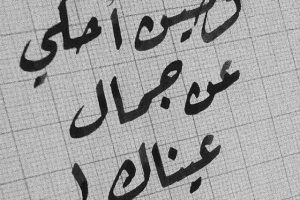 وحين أحكي
عن جمال
عيناك !